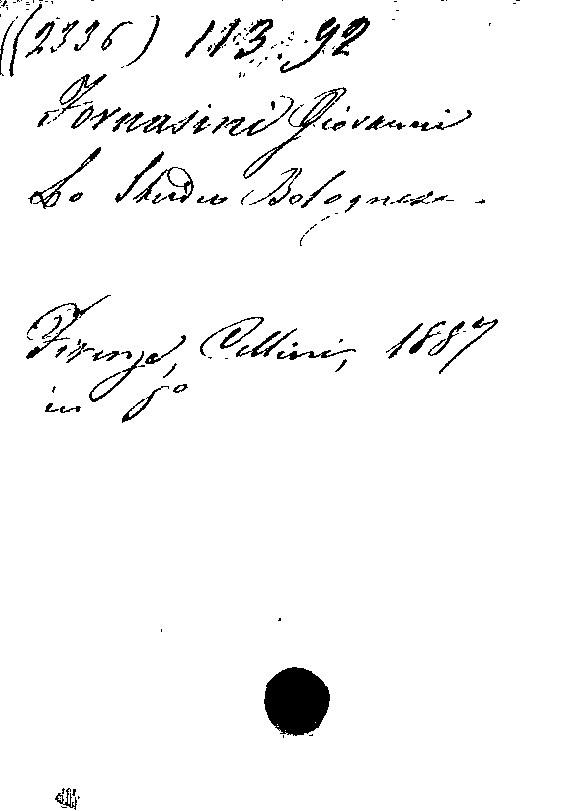 (2336) 113.92
Fornasini Giovanni
Lo Studio Bolognese.
Firenze, Cellini, 1887
in 8º